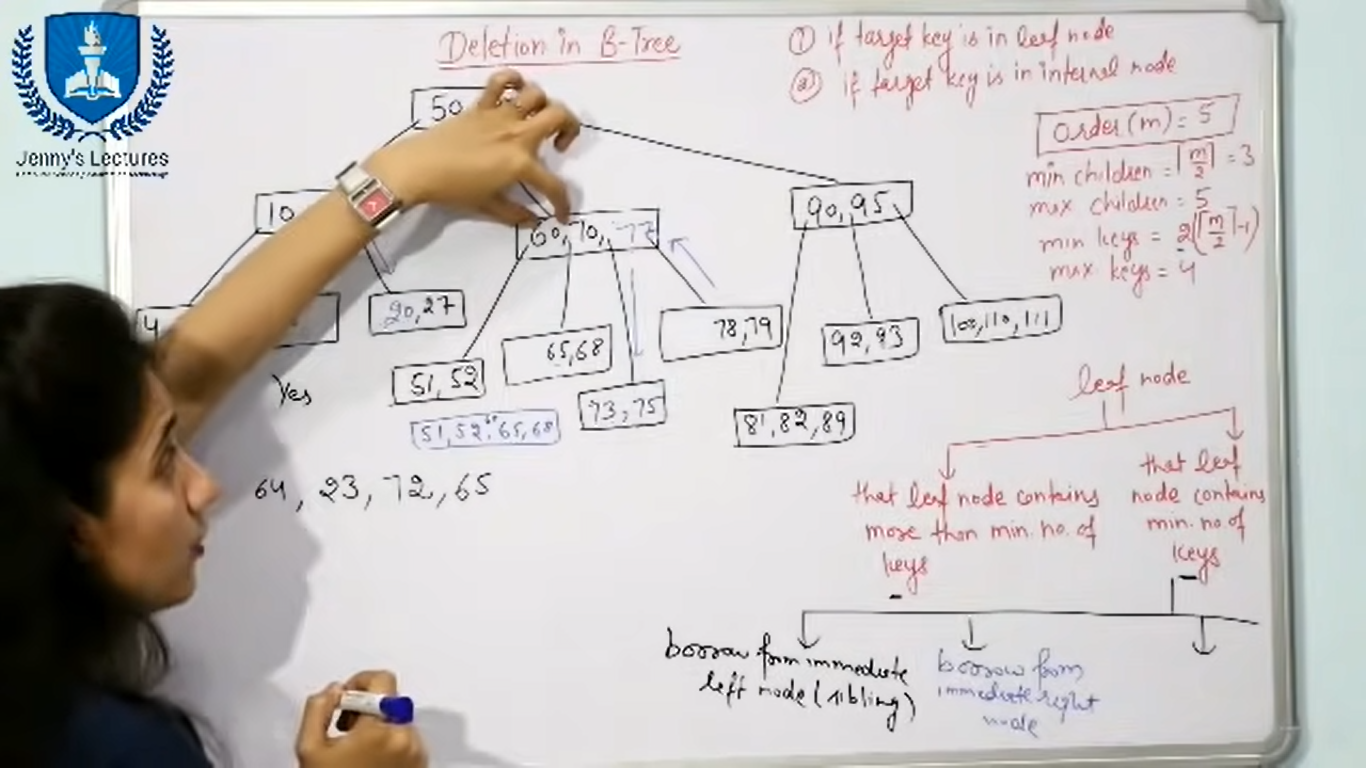 Jenny's Lectures
Deletion in B-Tree
① if target key is in leaf node
② if target key is in internal node
Order(m) = 5
min children = ⌈m/2⌉ = 3
max children = 5
min keys = 2 (⌈m/2⌉-1)
max keys = 4
50
10
60, 70, 77
90, 95
4
20, 27
51, 52
65, 68
73, 75
78, 79
81, 82, 89
92, 93
100, 110, 111
Yes
51, 52, 60, 65, 68
64, 23, 72, 65
leaf node
that leaf node contains
more than min. no. of
keys
that leaf
node contains
min. no of
keys
borrow from immediate
left node (sibling)
borrow from
immediate right
node